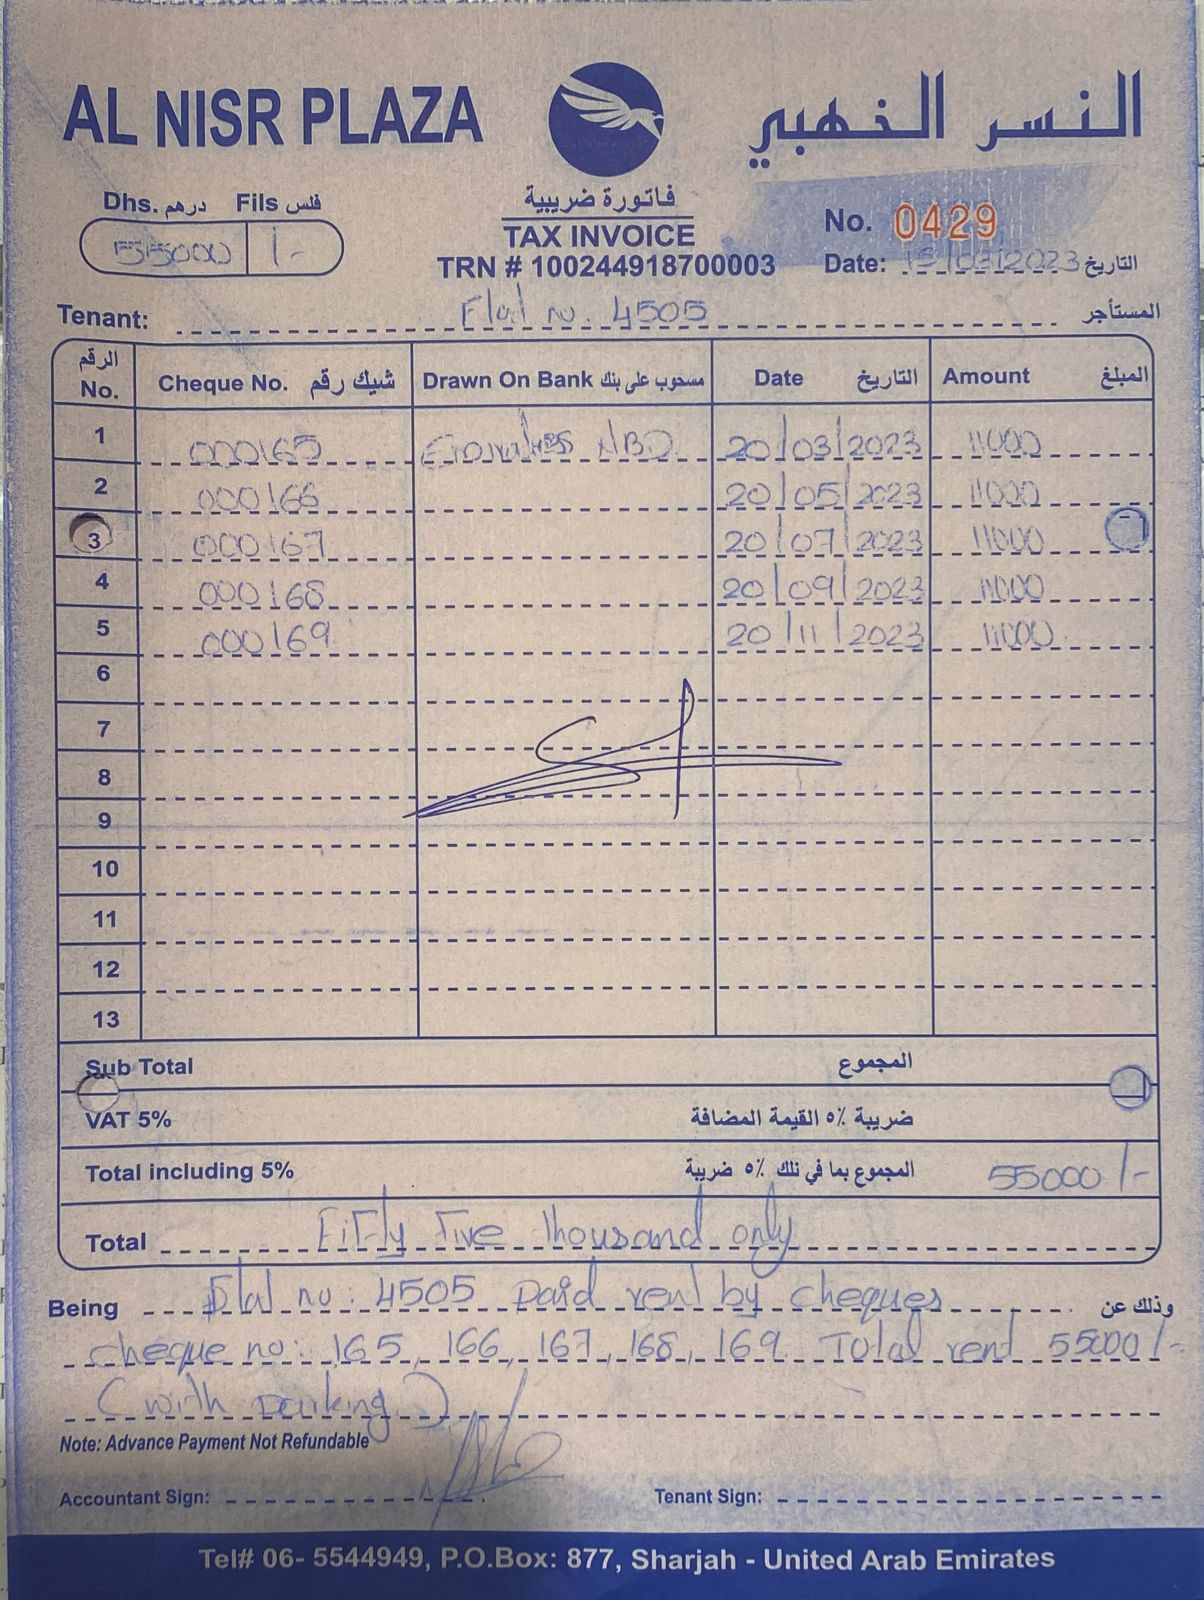 AL NISR PLAZA النسر الذهبي
Dhs. درهم Fils فلس
55000 /-
فاتورة ضريبية
TAX INVOICE
TRN # 100244918700003
No. 0429
Date: 15/03/2023 التاريخ
Tenant: Flat no. 4505 المستأجر
الرقم No. Cheque No. شيك رقم Drawn On Bank مسحوب على بنك Date التاريخ Amount المبلغ
1 000165 Emirates NBD 20/03/2023 11000
2 000166 20/05/2023 11000
3 000167 20/07/2023 11000
4 000168 20/09/2023 11000
5 000169 20/11/2023 11000
6
7
8
9
10
11
12
13
Sub Total المجموع
VAT 5% ضريبة ٥٪ القيمة المضافة
Total including 5% المجموع بما في تلك ٥٪ ضريبة 55000/-
Total Fifty Five thousand only
Being Flat no: 4505 Paid rent by cheques وذلك عن
cheque no: 165, 166, 167, 168, 169. Total rent 55000/-
(with parking)
Note: Advance Payment Not Refundable
Accountant Sign: Tenant Sign:
Tel# 06- 5544949, P.O.Box: 877, Sharjah - United Arab Emirates